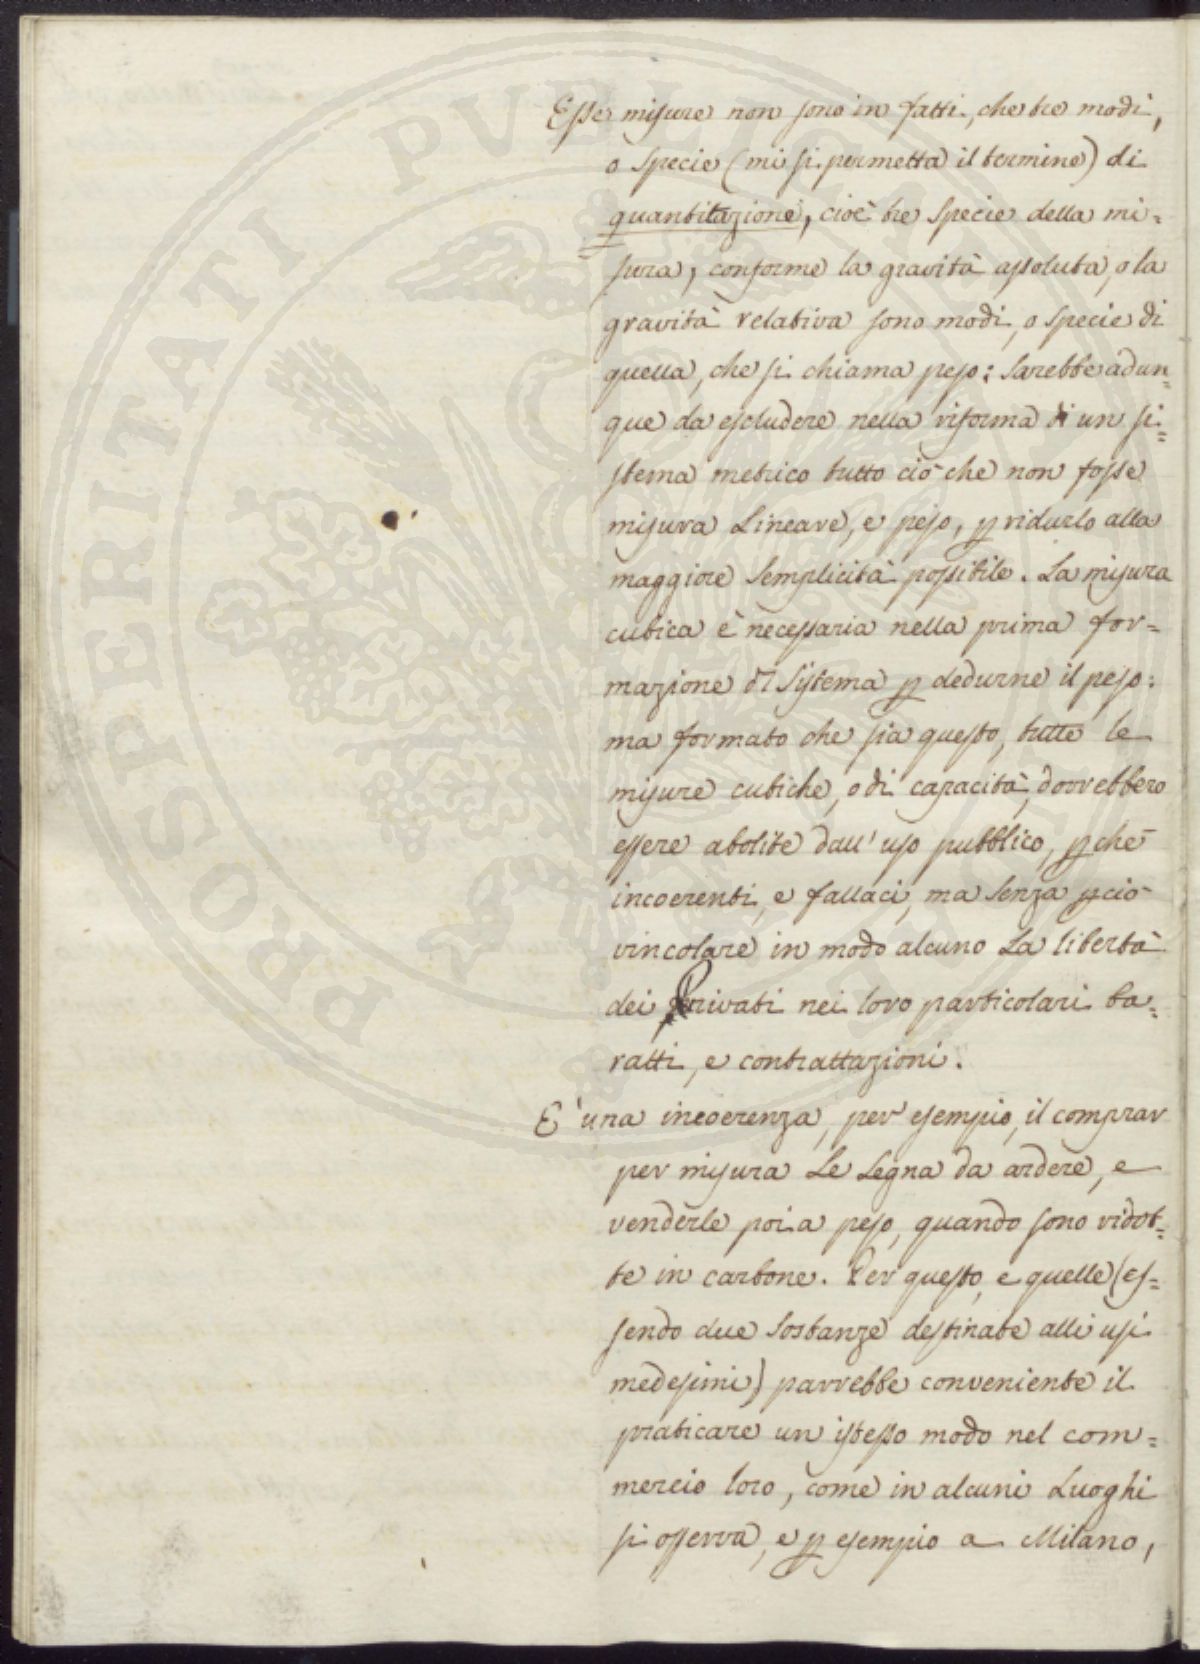 Esse misure non sono in fatti, che tre modi,
o specie (mi si permetta il termine) di
quantitazione, cioè tre specie della mi=
sura, conforme la gravità assoluta, o la
gravità relativa sono modi, o specie di
quella, che si chiama peso: sarebbe adun=
que da escludere nella riforma di un si=
stema metrico tutto ciò che non fosse
misura Lineare, e peso, p ridurlo alla
maggiore semplicità possibile. La misura
cubica è necessaria nella prima for=
mazione dl Sistema p dedurne il peso:
ma formato che sia questo, tutte le
misure cubiche, o di capacità, dovrebbero
essere abolite dall' uso pubblico, pchè
incoerenti, e fallaci, ma senza pciò
vincolare in modo alcuno La libertà
dei Privati nei loro particolari ba=
ratti, e contrattazioni.
E' una incoerenza, per esempio, il comprar
per misura Le Legna da ardere, e
venderle poi a peso, quando sono ridot=
te in carbone. Per questo, e quelle (es=
sendo due sostanze destinate alli usi
medesimi) parrebbe conveniente il
praticare un istesso modo nel com=
mercio loro, come in alcuni Luoghi
si osserva, e p esempio a Milano,
PROSPERITATI PVBLICAE